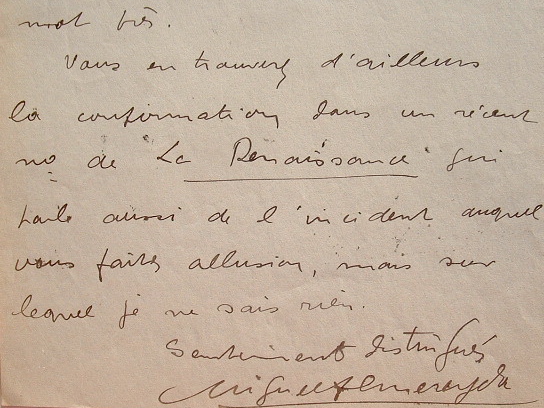 mot très.
Vous en trouverez d'ailleurs
la confirmation dans un récent
no de La Renaissance qui
parle aussi de l'incident auquel
vous faites allusion, mais sur
lequel je ne sais rien.
Sentiments distingués
Miguel Almereyda